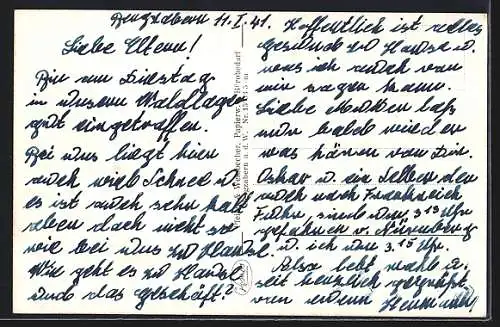 Bergzabern 11.I.41.
Liebe Eltern!
Bin am Dienstag
in unserm Waldlager
gut eingetroffen.
Bei uns liegt hier
auch viel Schnee u.
es ist auch sehr kalt
aber doch nicht so
wie bei uns zu Hause.
Wie geht es zu Hause
und das Geschäft?
Hoffentlich ist alles
gesund zu Hause u.
was ich auch von
mir sagen kann.
Liebe Mutter laß
mir bald wieder
was hören von Dir.
Oskar u. ein Selber der
auch nach Frankreich
Fuhr, sind um 3 13 Uhr
gefahren v. Nürnberg
u. ich um 3.15 Uhr.
Also lebt wohl u.
seit herzlich gegrüßt
von euerm Hermann